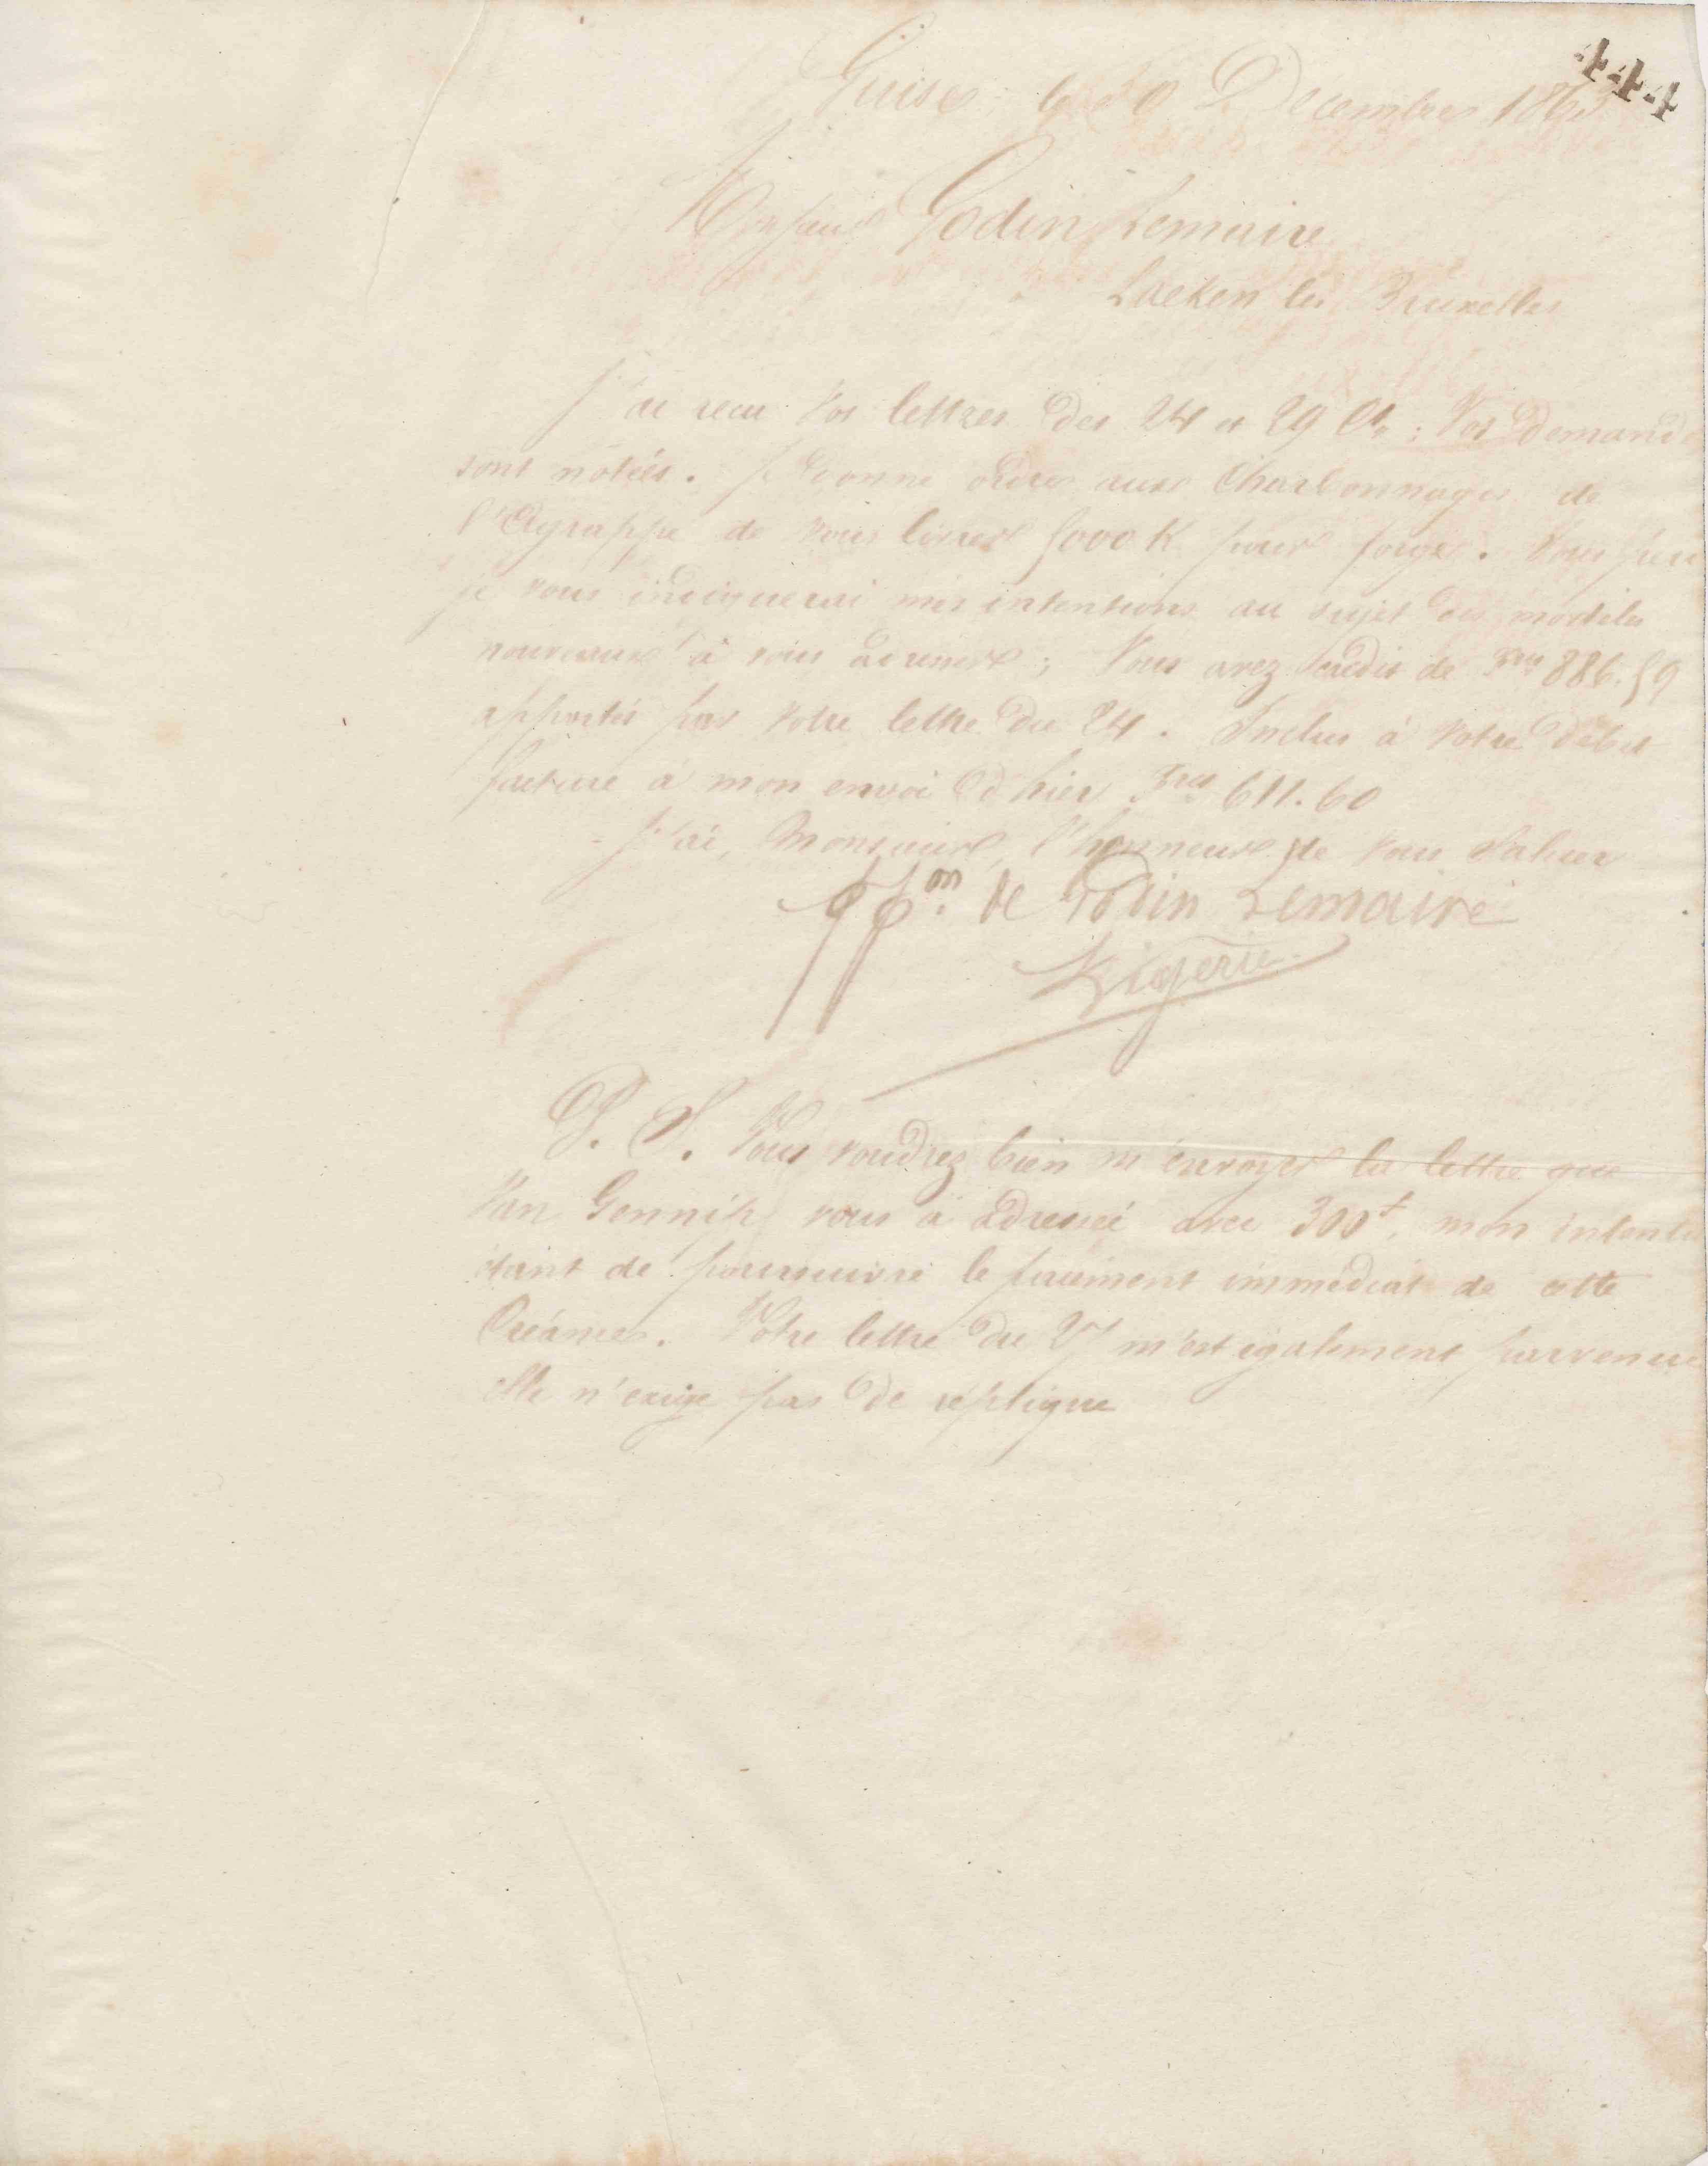 444
Guise le 30 Decembre 186
Monsieur Godin Lemaire
Laeken lès Bruxelles
J'ai reçu vos lettres des 24 et 29 Ct : Vos demande
sont notées. Je donne ordre aux Charbonnages de
l'Agrappe de vous livrer 5000 K pour forge. Sous peu
je vous indiquerai mes intentions au sujet des modèles
nouveaux à vous adresser ; Vous avez crédit de Frcs 886.59
apportés par votre lettre du 24. Inclus à votre débit
facture à mon envoi d'hier Frcs 611.60
J'ai, Monsieur, l'honneur de vous saluer
pp.on de Godin Lemaire
P. S. Vous voudrez bien m'envoyer la lettre que
Van Gennip vous a adressée avec 300f, mon intenti
étant de poursuivre le paiement immédiat de cette
Créance. Votre lettre du 27 m'est également parvenue
elle n'exige pas de réplique